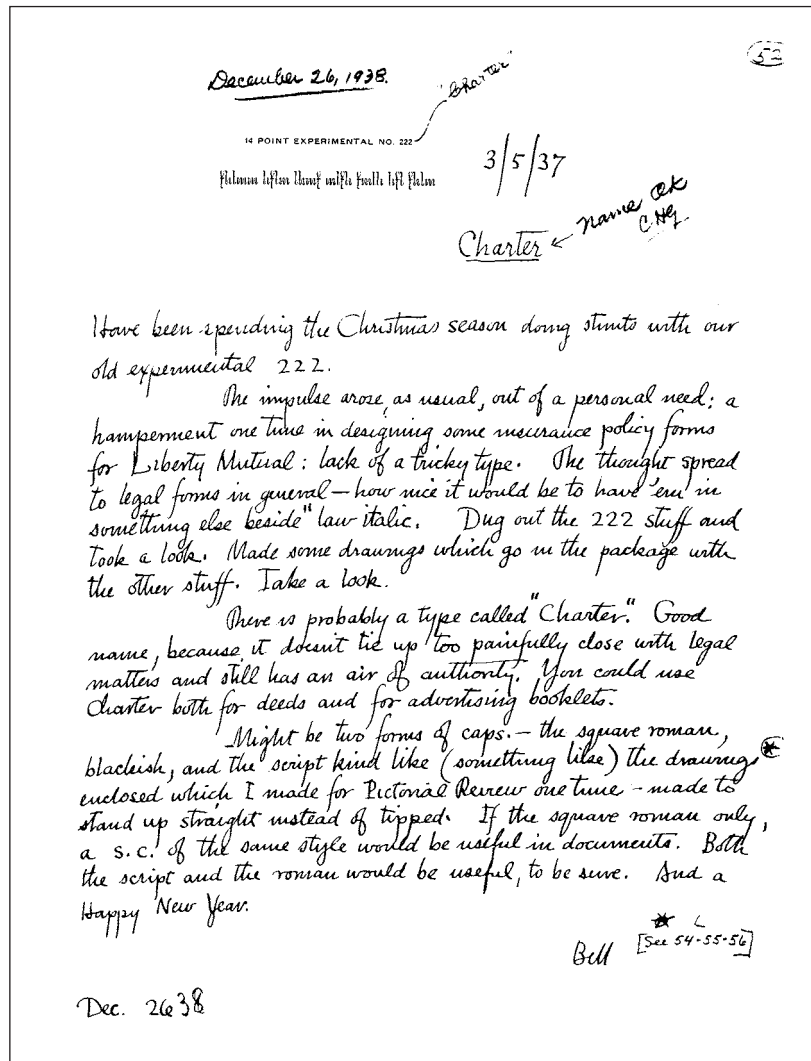 52
December 26, 1938.
"Charter"
14 POINT EXPERIMENTAL NO. 222
3/5/37
Charter ← name OK
C.H.G.
Have been spending the Christmas season doing stunts with our
old experimental 222.
The impulse arose, as usual, out of a personal need; a
hamperment one time in designing some insurance policy forms
for Liberty Mutual: lack of a tricky type. The thought spread
to legal forms in general — how nice it would be to have 'em in
something else beside "law italic. Dug out the 222 stuff and
took a look. Made some drawings which go in the package with
the other stuff. Take a look.
There is probably a type called "Charter." Good
name, because it doesn't tie up too painfully close with legal
matters and still has an air of authority. You could use
Charter both for deeds and for advertising booklets.
Might be two forms of caps. — the square roman,
blackish, and the script kind like (something like) the drawings *
enclosed which I made for Pictorial Review one time — made to
stand up straight instead of tipped. If the square roman only,
a s.c. of the same style would be useful in documents. Both
the script and the roman would be useful, to be sure. And a
Happy New Year.
*
[See 54-55-56]
Bill
Dec. 26 38